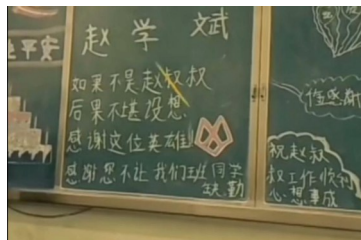 平安
赵学斌
如果不是赵叔叔
后果不堪设想
感谢这位英雄
感谢您不让我们班同学
缺勤
值感谢
祝赵叔
叔工作顺利
心想事成